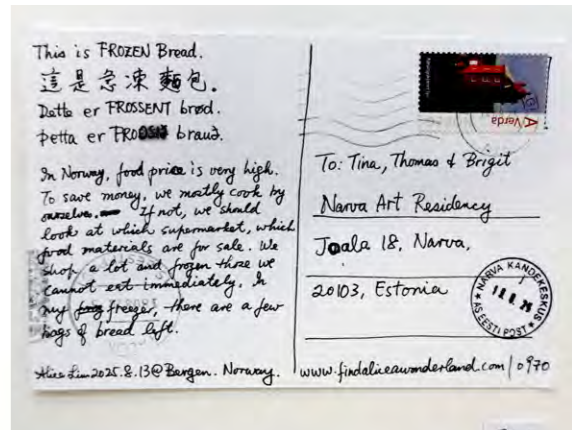 This is FROZEN Bread.
這是急凍麵包.
Dette er FROSSENT brød.
Þetta er brauð.
In Norway, food price is very high.
To save money, we mostly cook by
ourselves. If not, we should
look at which supermarket, which
food materials are for sale. We
shop a lot and frozen those we
cannot eat immediately. In
my freezer, there are a few
bags of bread left.
Alice Lim 2025.8.13@Bergen. Norway.
A Verda
To: Tina, Thomas & Brigit
Narva Art Residency
Joala 18, Narva,
20103, Estonia
NARVA KANDEKESKUS
AS EESTI POST
www.findaliceawonderland.com/0970